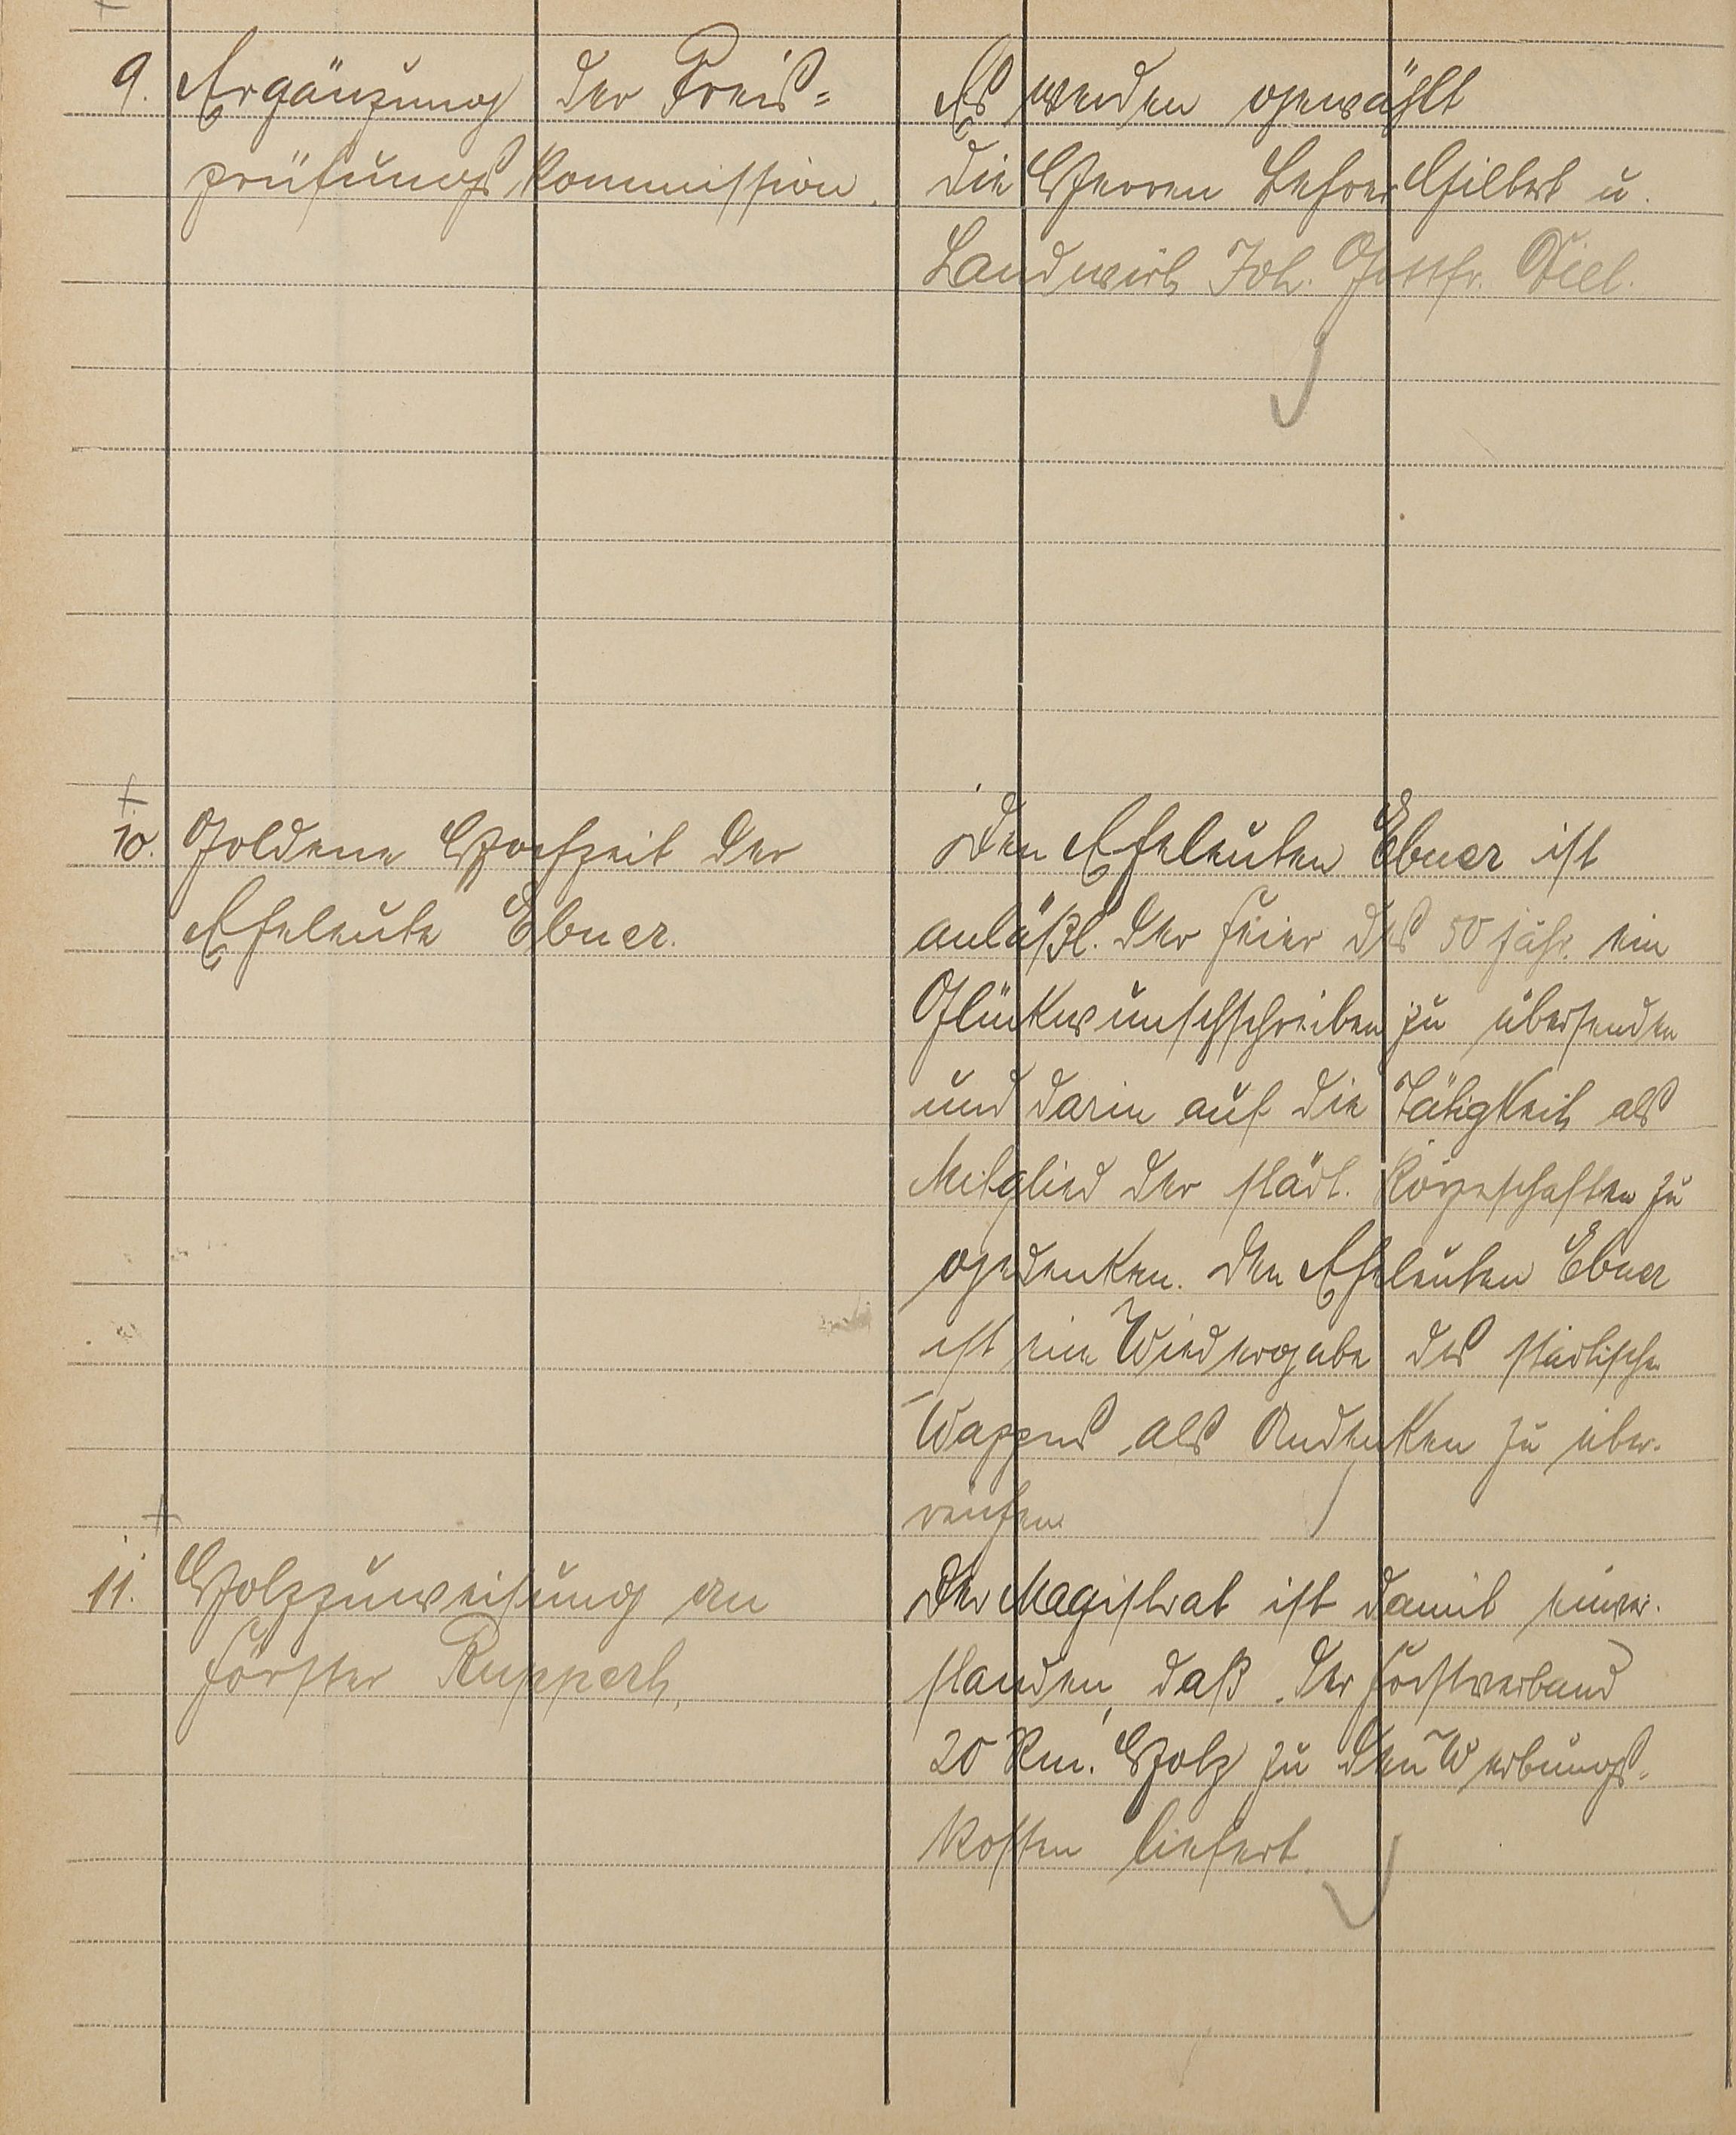 9. Ergänzung der Preis=
prüfungs Kommission.
Es werden gewählt
die Herren Lehrer Hilbert u.
Landwirt Joh. Gottfr. Diel.
10. Goldene Hochzeit der
Eheleute Ebner.
Den Eheleuten Ebner ist
anläßl. der Feier des 50 jähr. ein
Glückwunschschreiben zu übersenden
und darin auf die Tätigkeit als
Mitglied der städt. Körperschaften zu
gedenken. Den Eheleuten Ebner
ist eine Wiedergabe des städtischen
Wappens als Andenken zu über-
reichen
11. Holzzuweisung an
Förster Ruppert.
Der Magistrat ist damit einver-
standen, daß der Forstverband
20 Rm. Holz zu den Werbungs-
kosten liefert.